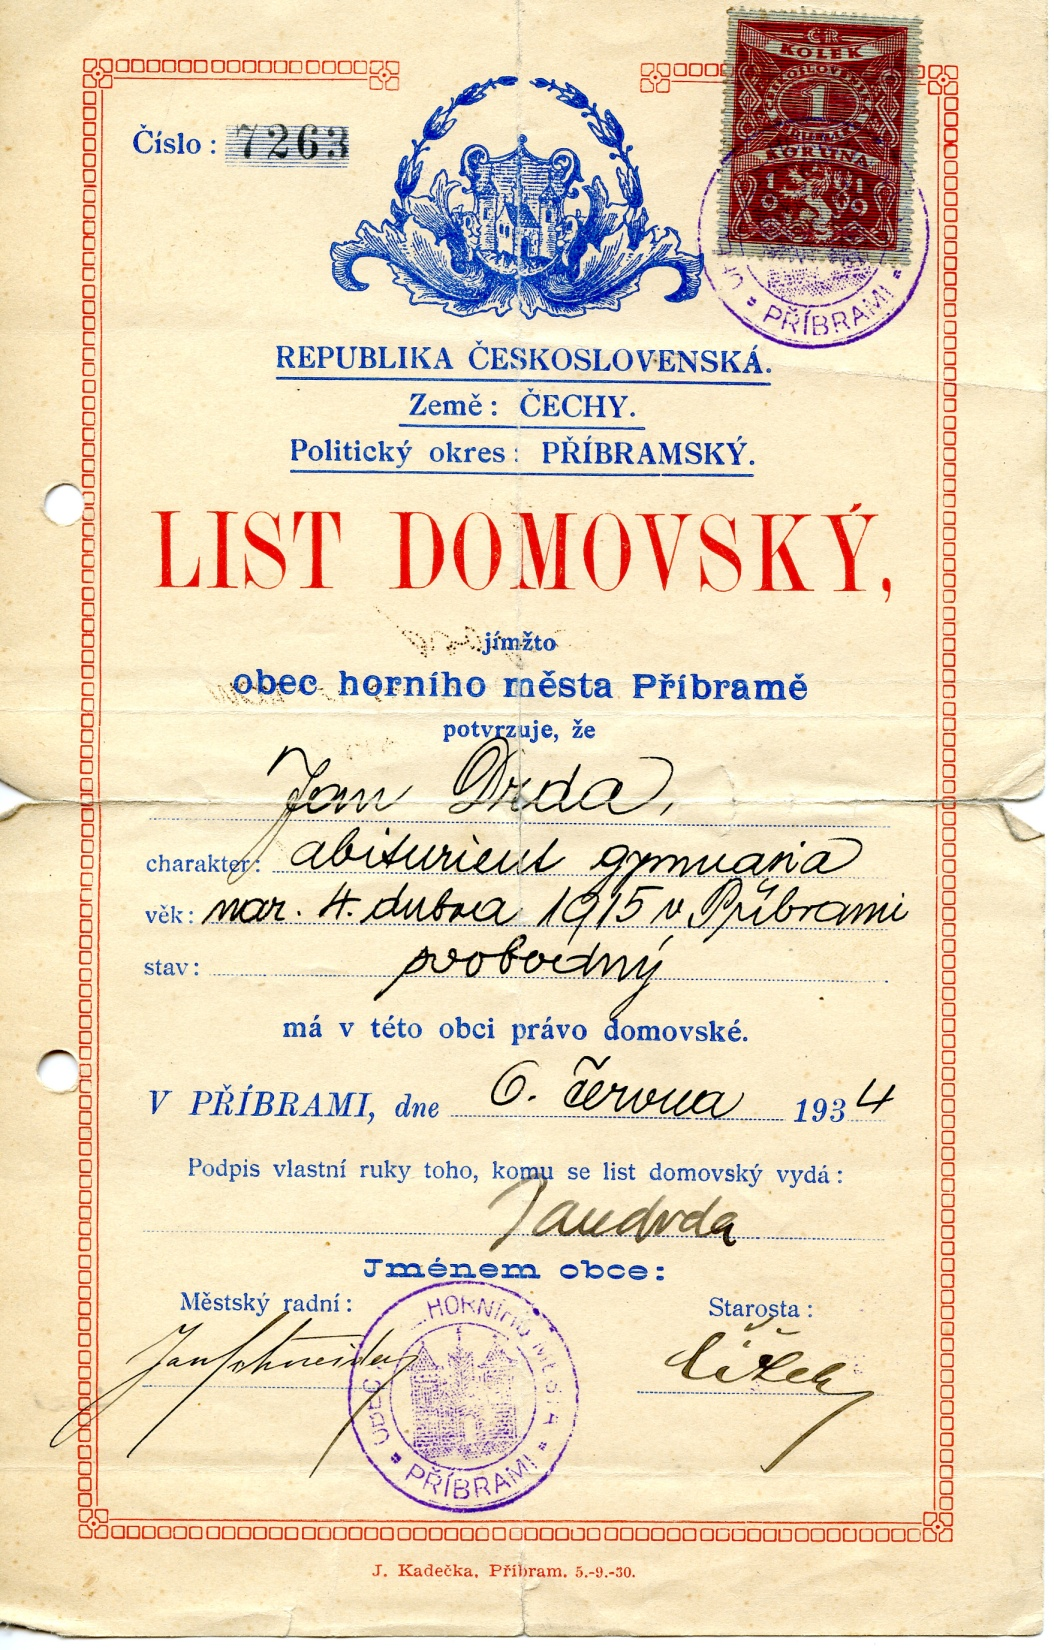 ČR
KOLEK
1
KORUNA
1919
Číslo: 7263
PŘÍBRAMI
REPUBLIKA ČESKOSLOVENSKÁ.
Země: ČECHY.
Politický okres: PŘÍBRAMSKÝ.
LIST DOMOVSKÝ,
jímžto
obec horního města Příbramě
potvrzuje, že
Jan Drda,
charakter: abiturient gymnasia
věk: nar. 4. dubna 1915 v Příbrami
stav: svobodný
má v této obci právo domovské.
V PŘÍBRAMI, dne 6. června 1934
Podpis vlastní ruky toho, komu se list domovský vydá:
Jan Drda
Jménem obce:
Městský radní: Starosta:
HORNÍHO MĚSTA
PŘÍBRAMI
Čížek
J. Kadečka, Příbram. 5.-9.-30.